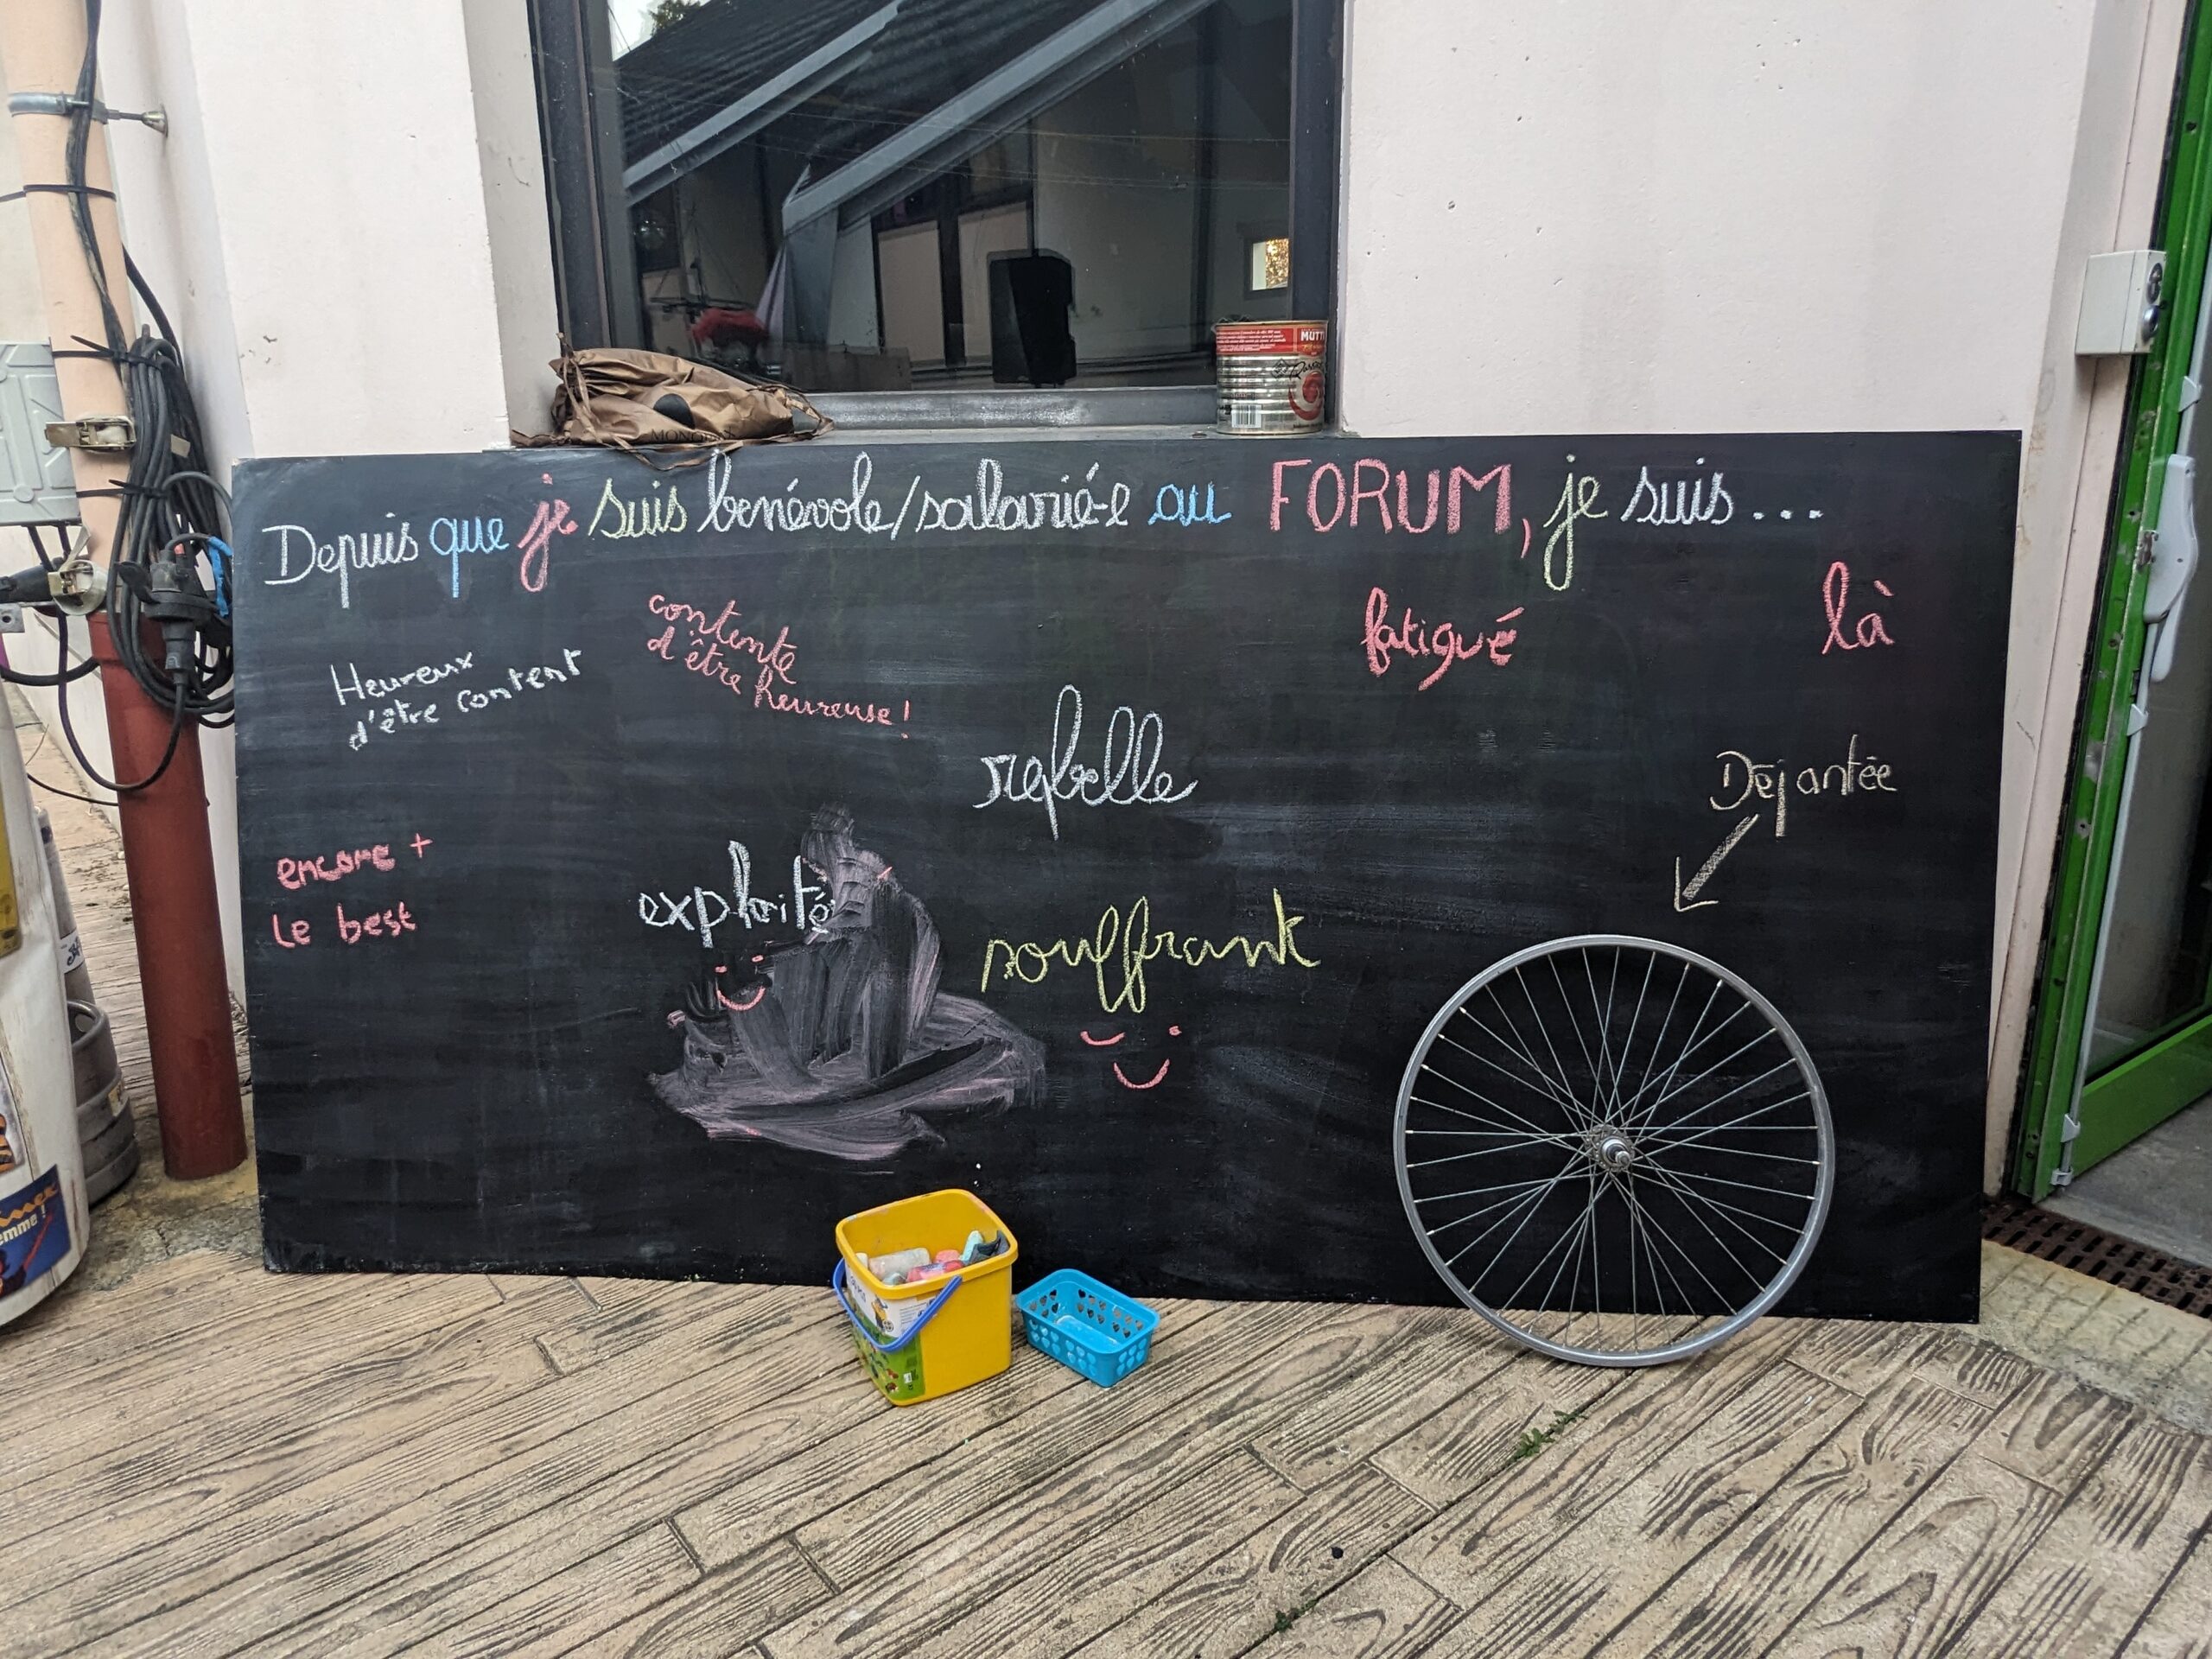 MUTTI
MONOP
Depuis que je suis bénévole/salarié-e au FORUM, je suis...
Heureux
d'être content
contente
d'être heureuse !
fatigué
là
rebelle
Déjantée
encore +
le best
exploité
souffrant
emme !